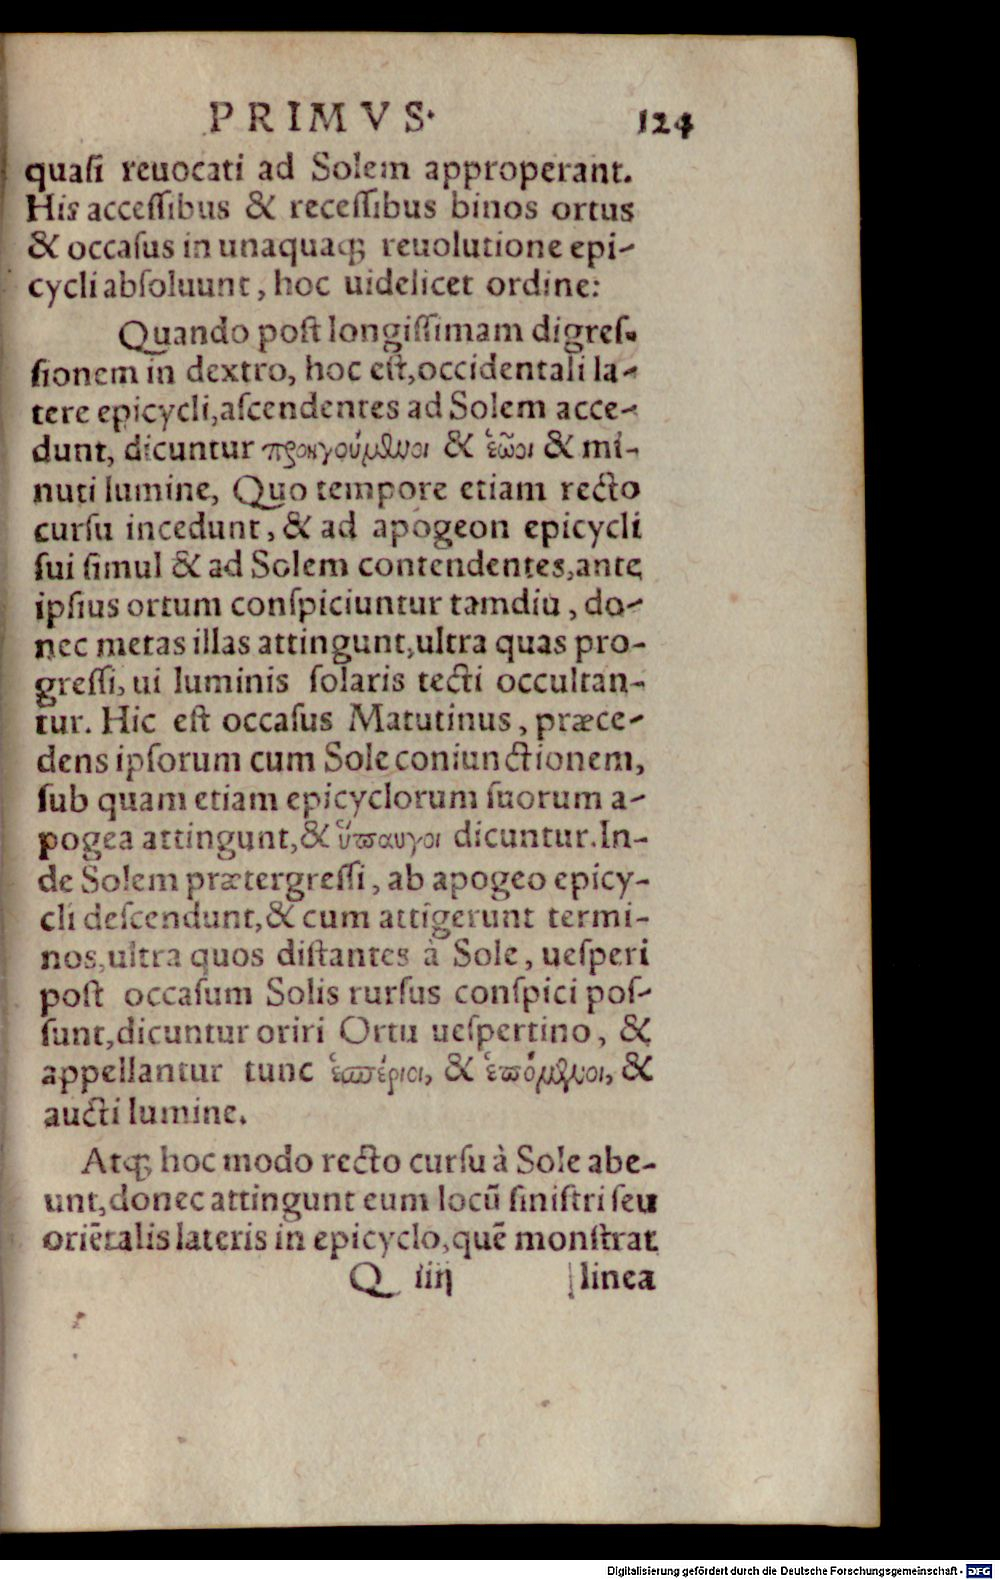 PRIMVS. 124
quasi reuocati ad Solem approperant.
His accessibus & recessibus binos ortus
& occasus in unaquaq; reuolutione epi-
cycli absoluunt, hoc uidelicet ordine:
Quando post longissimam digres-
sionem in dextro, hoc est, occidentali la-
tere epicycli, ascendentes ad Solem acce-
dunt, dicuntur προηγούμενοι & ἑῶοι & mi-
nuti lumine, Quo tempore etiam recto
cursu incedunt, & ad apogeon epicycli
sui simul & ad Solem contendentes, ante
ipsius ortum conspiciuntur tamdiu, do-
nec metas illas attingunt, ultra quas pro-
gressi, ui luminis solaris tecti occultan-
tur. Hic est occasus Matutinus, præce-
dens ipsorum cum Sole coniunctionem,
sub quam etiam epicyclorum suorum a-
pogea attingunt, & ὕπαυγοι dicuntur. In-
de Solem prætergressi, ab apogeo epicy-
cli descendunt, & cum attigerunt termi-
nos, ultra quos distantes à Sole, uesperi
post occasum Solis rursus conspici pos-
sunt, dicuntur oriri Ortu uespertino, &
appellantur tunc ἑσπέριοι, & ἑπόμενοι, &
aucti lumine.
Atq; hoc modo recto cursu à Sole abe-
unt, donec attingunt eum locū sinistri seu
oriētalis lateris in epicyclo, quē monstrat
Q iiij linea
Digitalisierung gefördert durch die Deutsche Forschungsgemeinschaft - DFG